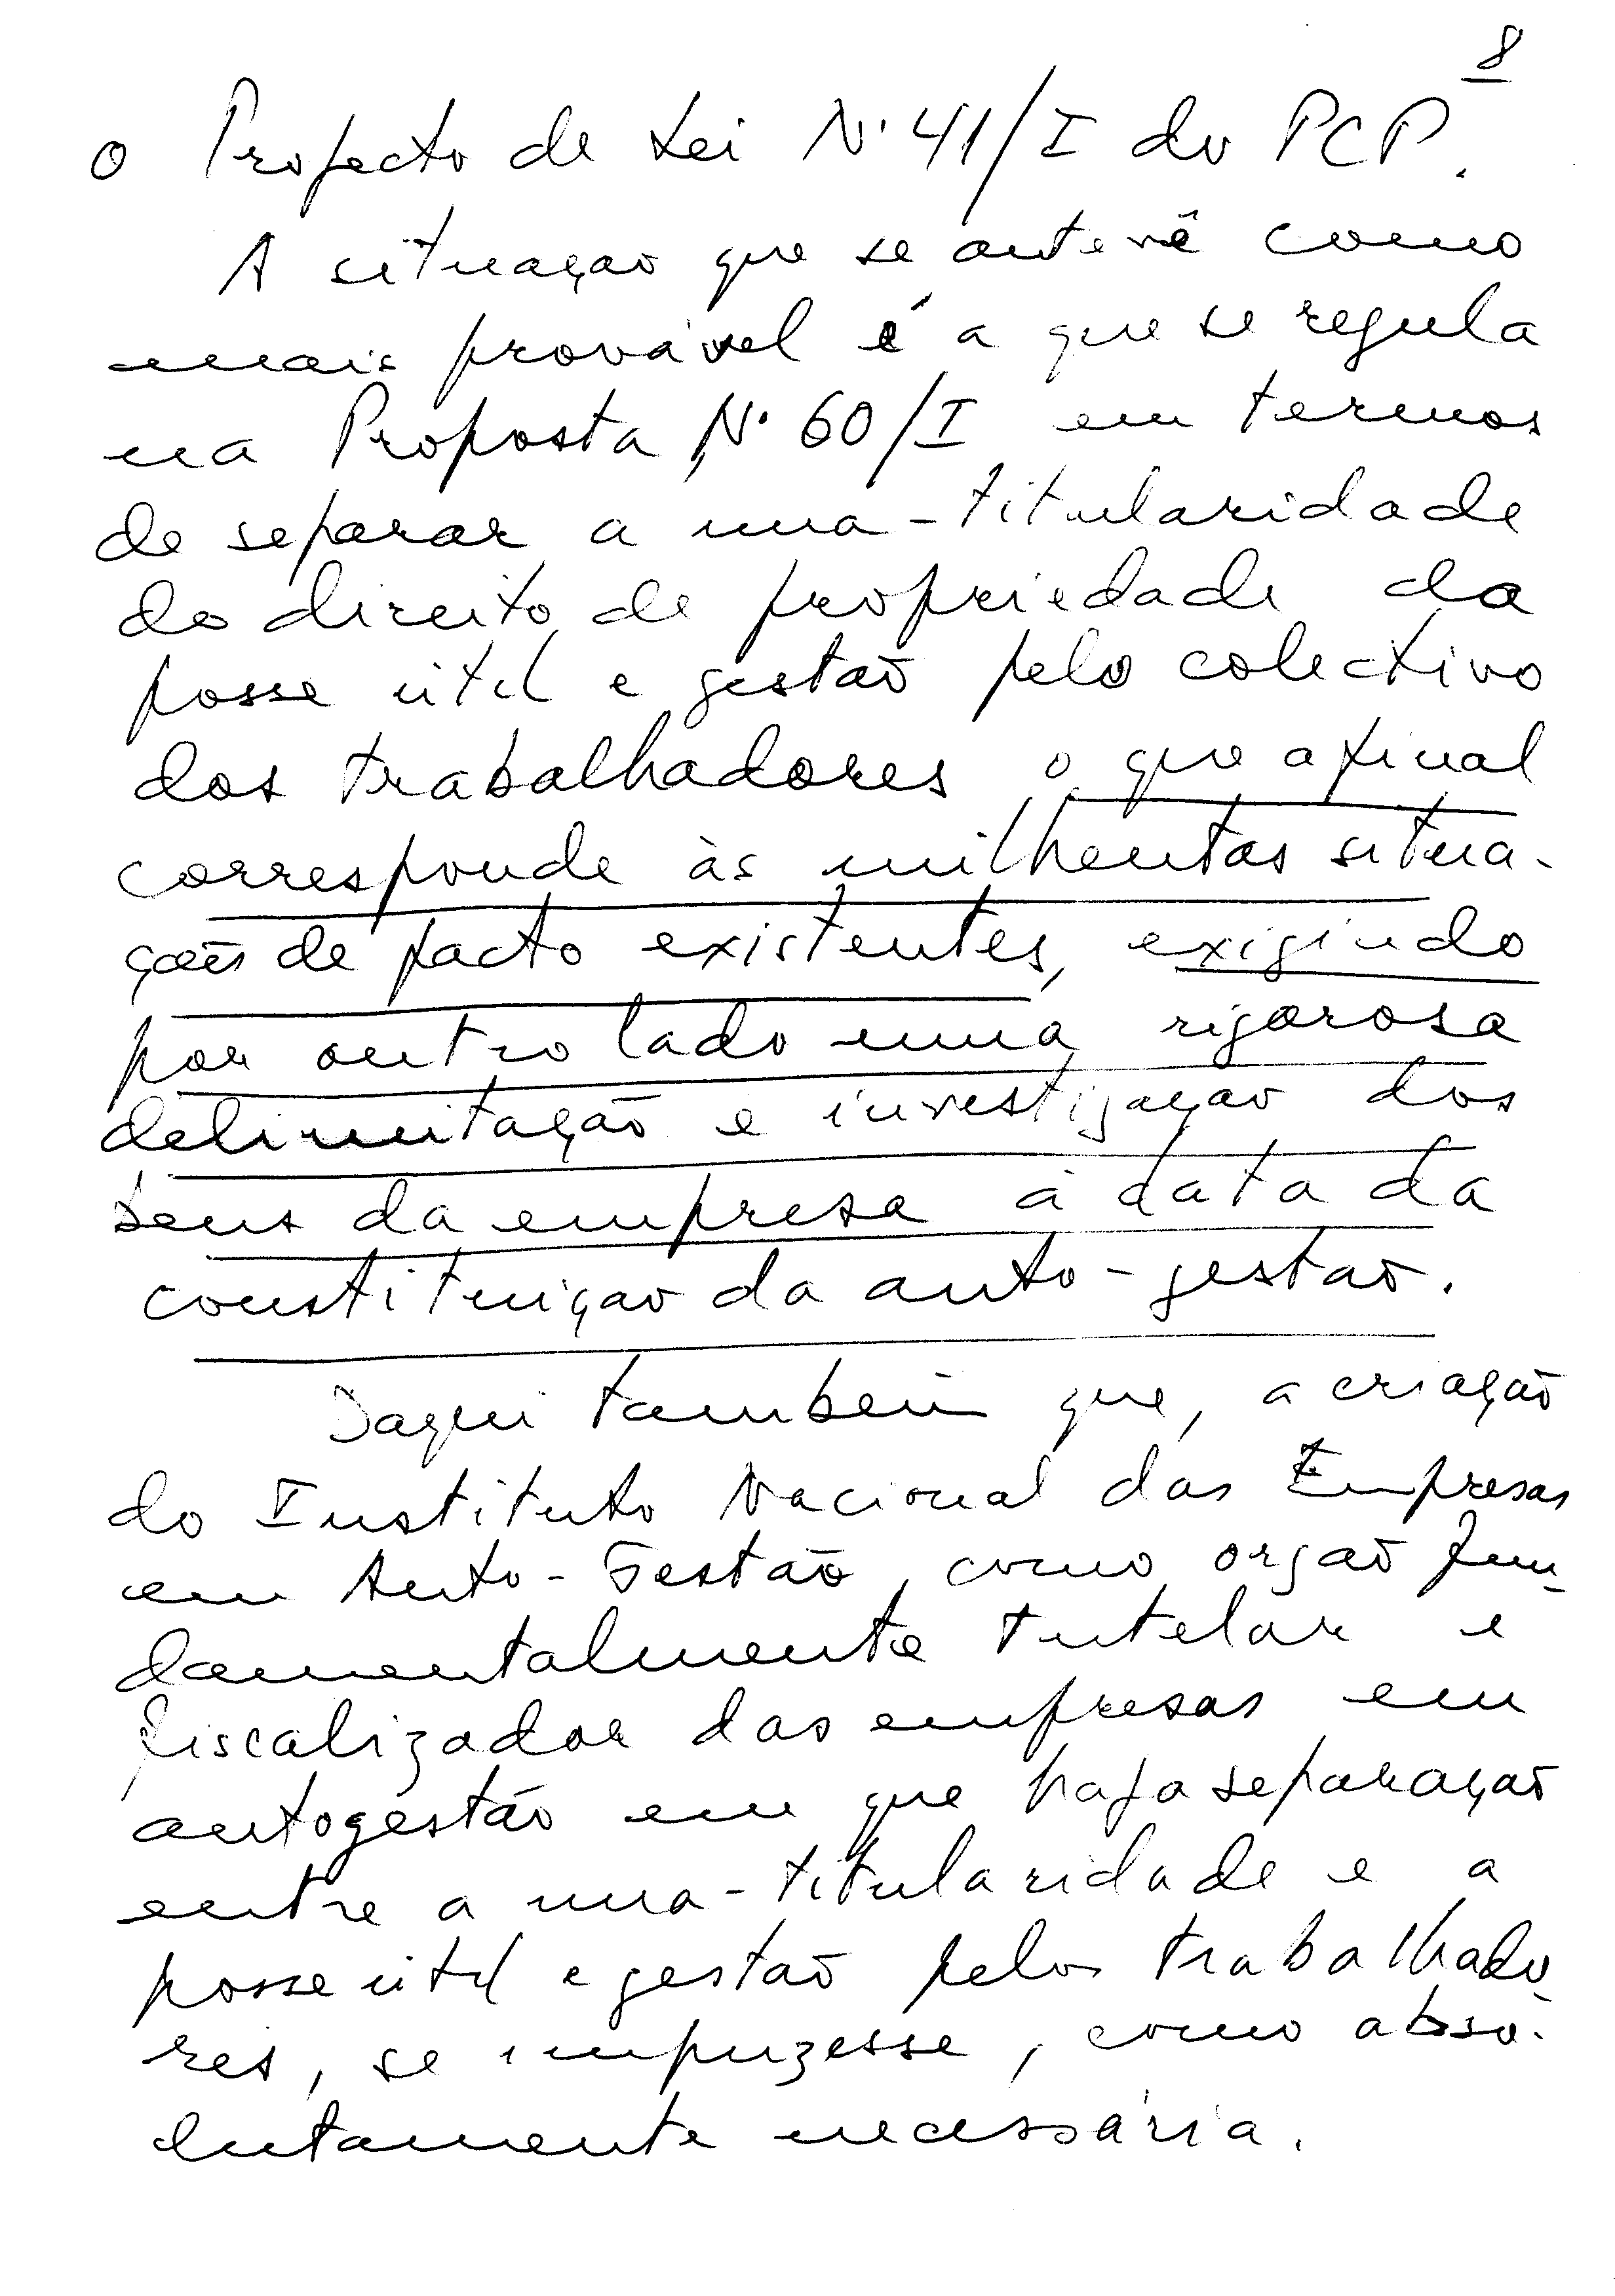 8
o Projecto de Lei Nº 41/I do PCP.
A situaçao que se antevê como
mais provável é a que se regula
na Proposta Nº 60/I em termos
de separar a nua-titularidade
do direito de propriedade da
posse útil e gestão pelo colectivo
dos trabalhadores, o que afinal
corresponde às milhentas situa-
ções de facto existentes, exigindo
por outro lado uma rigorosa
delimitação e investigaçao dos
bens da empresa à data da
constituiçao da auto-gestão.
Daqui tambem que, a criação
do Instituto Nacional das Empresas
em Auto-Gestão, como orgão fun-
damentalmente tutelar e
fiscalizador das empresas em
autogestão em que haja separação
entre a nua-titularidade e a
posse útil e gestão pelos trabalhado-
res, se impuzesse, como abso-
lutamente necessária.